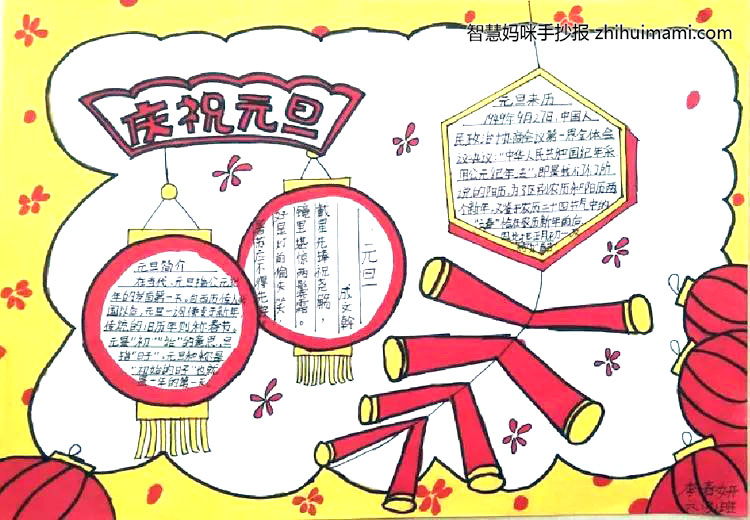 智慧妈咪手抄报-zhihuimami.com
庆祝元旦
元旦来历
1949年9月27日,中国人
民政治协商会议第一届全体会
议决议:"中华人民共和国纪年采
用公元纪年法",即是我们所
说的阳历,为了区别农历和阳历两
个新年,又鉴于农历二十四节气中的
"立春"恰在农历新年前后
元旦
成文幹
戴星先捧祝尧觞,
镜里堪惊两鬓霜。
好是灯前偷失笑,
屠苏应不得先尝
元旦简介
在古代,元旦指公元纪
年的岁首第一天。自西历传入我
国以后,元旦一词便专用新年,
传统的旧历年则称春节。
元是"初""始"的意思,旦
指"日子",元旦和称是
"初始的日子"也就
是一年的第一天